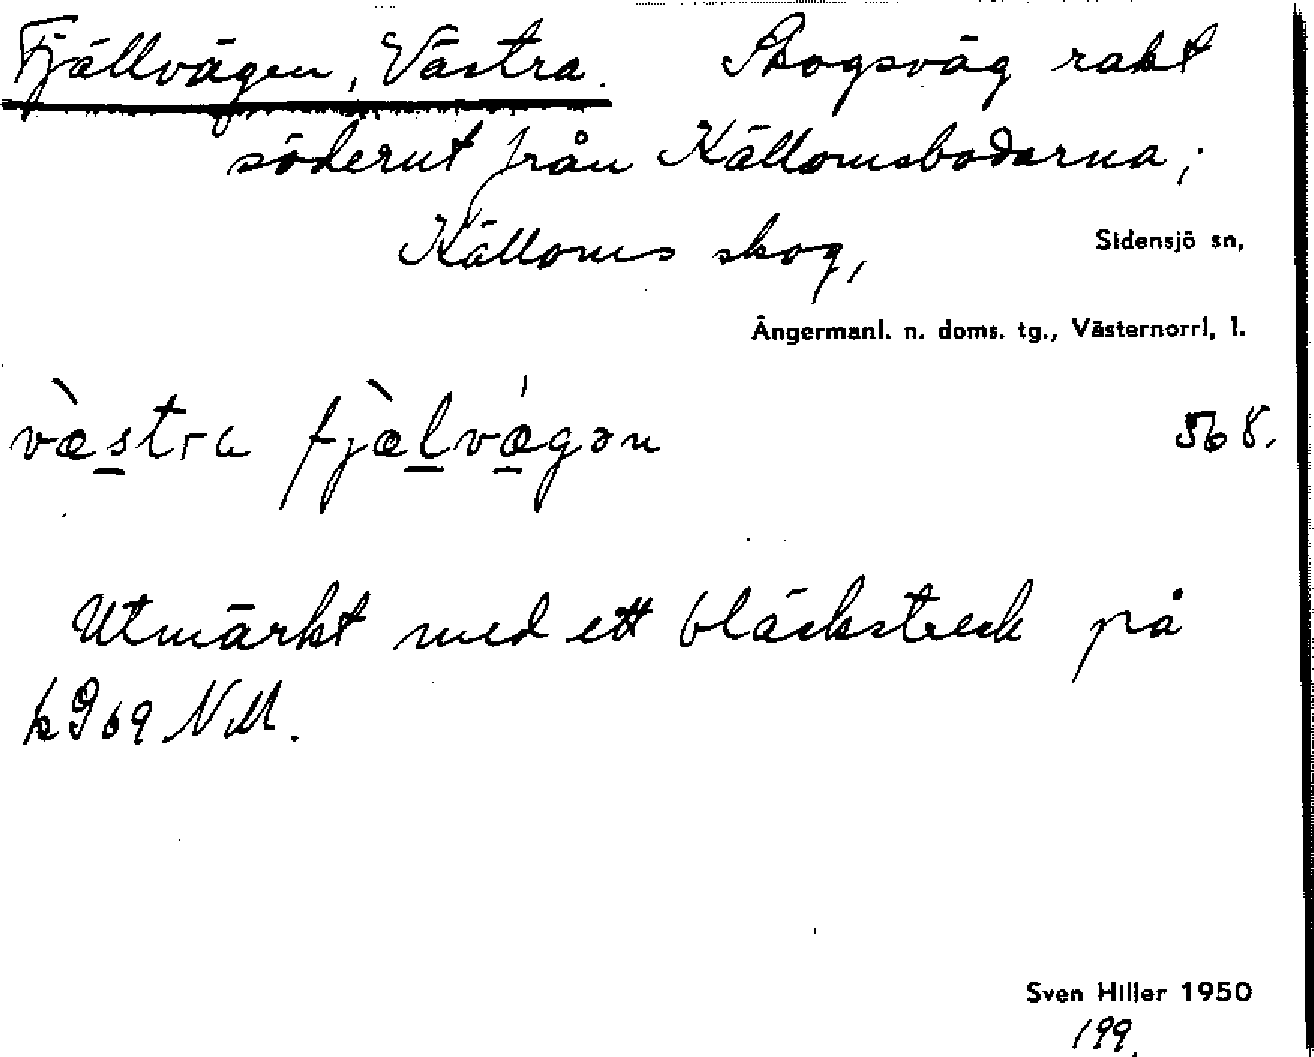 Fjällvägen, Västra. Skogsväg rakt
söderut från Källomsbodarna;
Källoms skog,
Sidensjö sn,
Ångermanl. n. doms. tg., Västernorrl. l.
væ̀stra fjæ̀lvǽgən 568.
Utmärkt med ett bläckstreck på
k969 NM.
Sven Hiller 1950
199.